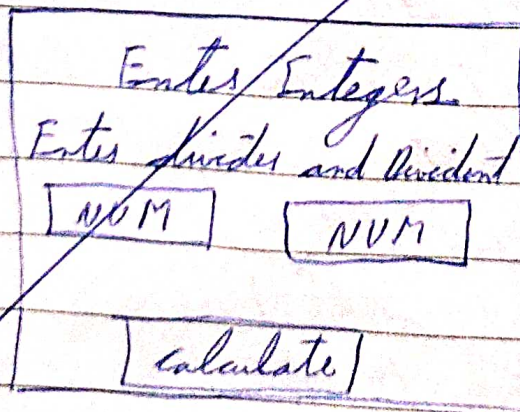 Enter Integers
Enter divider and Divident
NUM NUM
calculate